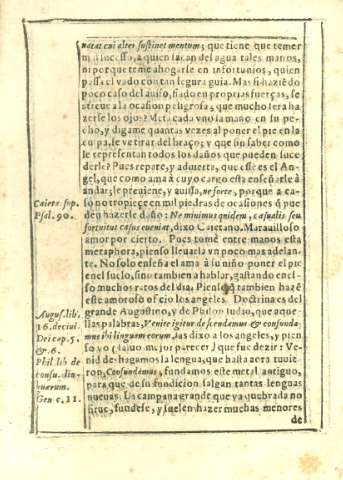 natat cui alter sustinet mentum; que tiene que temer
mal sucesso, a quien sacan del agua tales manos,
ni porque teme ahogarse en infortunios, quien
passa el vado con tan segura guia. Mas si haziẽdo
poco caso del auiso, fiado en proprias fuerças, se
atreue a la ocasion peligrosa; que mucho sera ha
zerse los ojos? Meta cada vno la mano en su pe
cho, y digame quantas vezes al poner el pie en la
culpa, se ve tirar del braço; y que sin saber como
le representan todos los daños que pueden suce
derle? Pues repare, y aduierta, que esse es el An
gel, que como ama à cuyo cargo està enseñarle à
andar, le preuiene, y auisa, ne forte, porque a ca-
so no tropiece en mil piedras de ocasiones q̃ pue
den hazerle daño: Ne minimus quidem, casualis seu
fortuitus casus eueniat, dixo Caietano. Marauilloso
amor por cierto. Pues tomè entre manos esta
metaphora, pienso lleuarla vn poco mas adelan-
te. No solo enseña el ama à su niño poner el pie
en el suelo, sino tambien a hablar, gastando en es-
so muchos ratos del dia. Pienso q̃ tambien hazẽ
este amoroso oficio los angeles. Doctrina es del
grande Augustino, y de Philon Iudio, que aque-
llas palabras, Venite igitur descendamus & confunda-
mus ibi linguam eorum, las dixo a los angeles, y pien
so yo (saluo mejor parecer) que fue dezir: Ve-
nid deshagamos la lengua, que hasta aora tuuie-
ron, Confundamus, fundamos este metal antiguo,
para que de su fundicion salgan tantas lenguas
nueuas. Vna campana grande que ya quebrada no
sirue, fundese, y suelen hazer muchas menores
de
Caiet. sup.
Psal. 90.
August. lib.
16. de ciui.
Dei cap. 5.
& 6.
Phil. lib. de
confu. lin-
guarum.
Gen. c. 11.